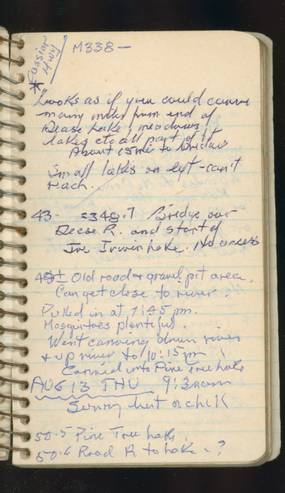 Cassiar Hwy
M338 -
* Looks as if you could canoe
many miles from end of
Dease Lake, meadows,
lakes etc all part of it
About 15 mi to bridge
Small lakes on left - can't
reach.
43 - =340.7 Bridge over
Dease R. and start of
Joe Irwin Lake. No access
49± Old road & gravel pit area
Can get close to river.
Pulled in at 7:45 pm.
Mosquitoes plentiful.
Went canoeing down river
& up river to 10:15 pm
Canoed into Pine Tree Lake
AUG 13 THU 9:30am
Sunny but
50.5 Pine Tree Lake,
50.6 Road R to lake - ?